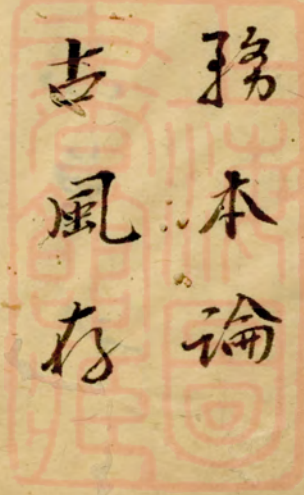 務本論
古風存